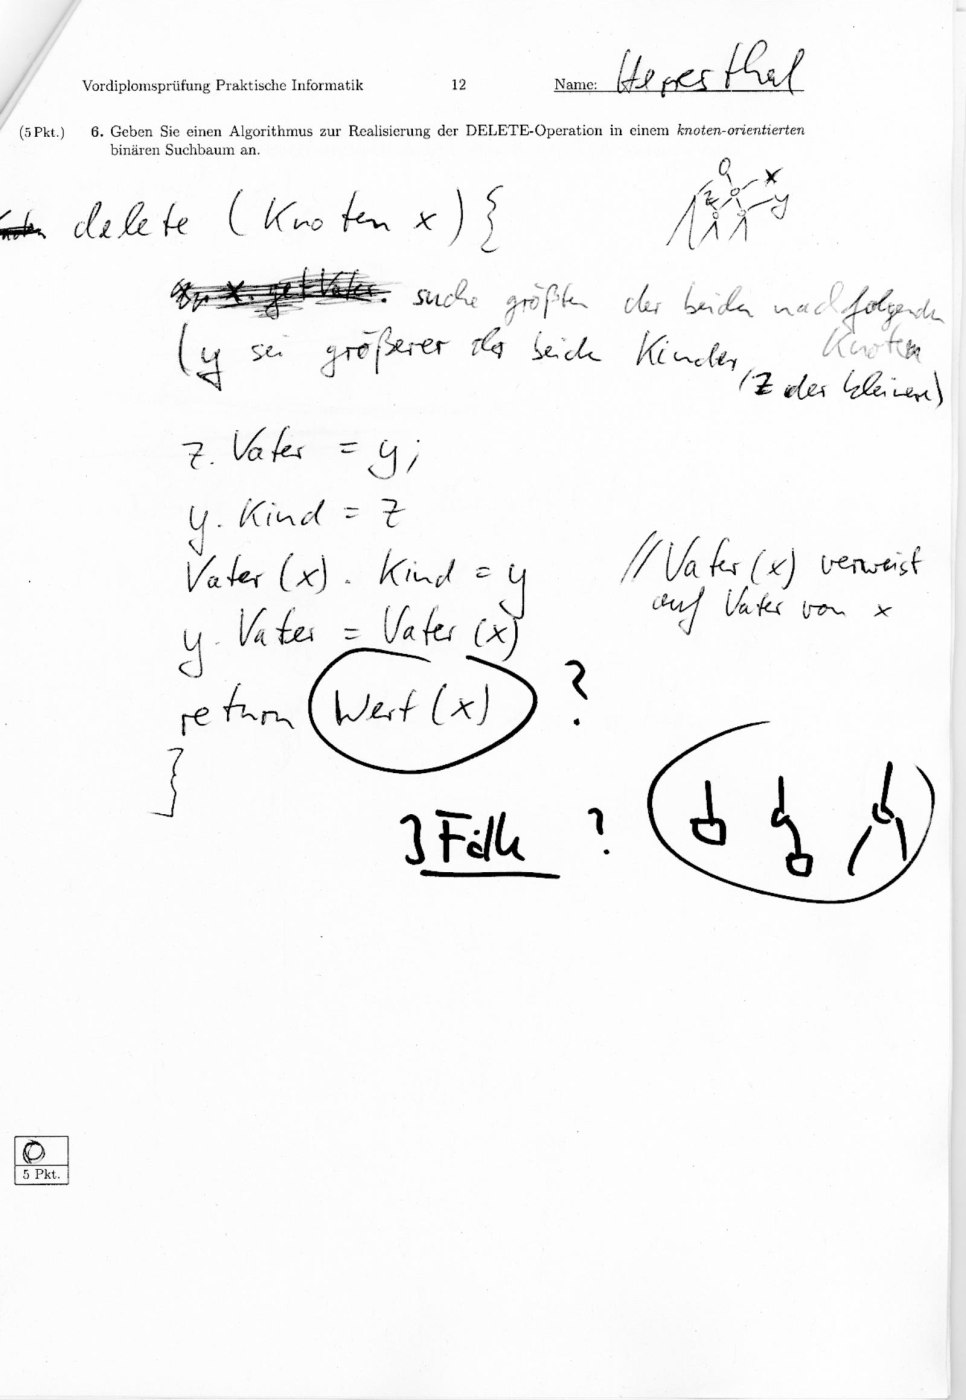 Vordiplomsprüfung Praktische Informatik 12 Name:
(5 Pkt.) 6. Geben Sie einen Algorithmus zur Realisierung der DELETE-Operation in einem knoten-orientierten
binären Suchbaum an.
x
z
y
delete (Knoten x) {
suche größten der beiden nachfolgenden
Knoten
(y sei größerer der beide Kinder,
/z der kleinere)
z. Vater = y;
y. Kind = z
Vater (x) . Kind = y //Vater (x) verweist
auf Vater von x
y. Vater = Vater (x)
return Wert (x) ?
}
3 Fälle ?
0
5 Pkt.